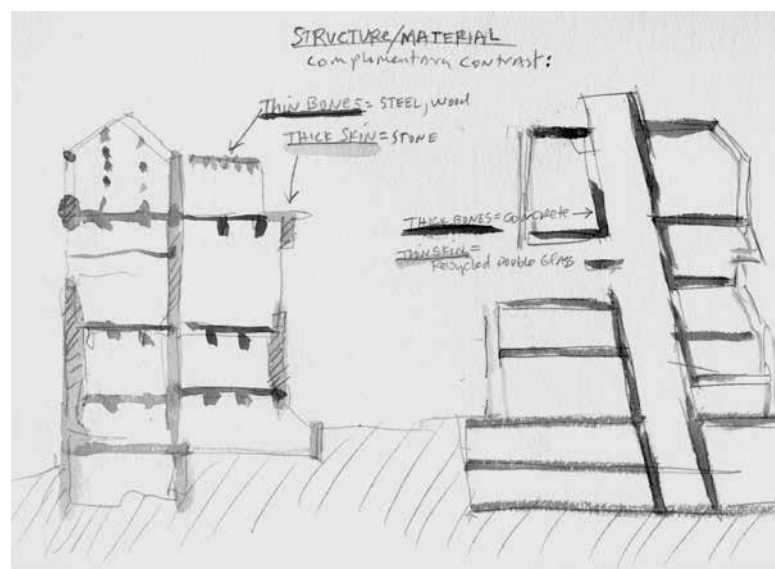 STRUCTURE/MATERIAL
COMPLEMENTARY CONTRAST:
THIN BONES = STEEL, WOOD
THICK SKIN = STONE
THICK BONES = CONCRETE
THIN SKIN =
Recycled Double Glass